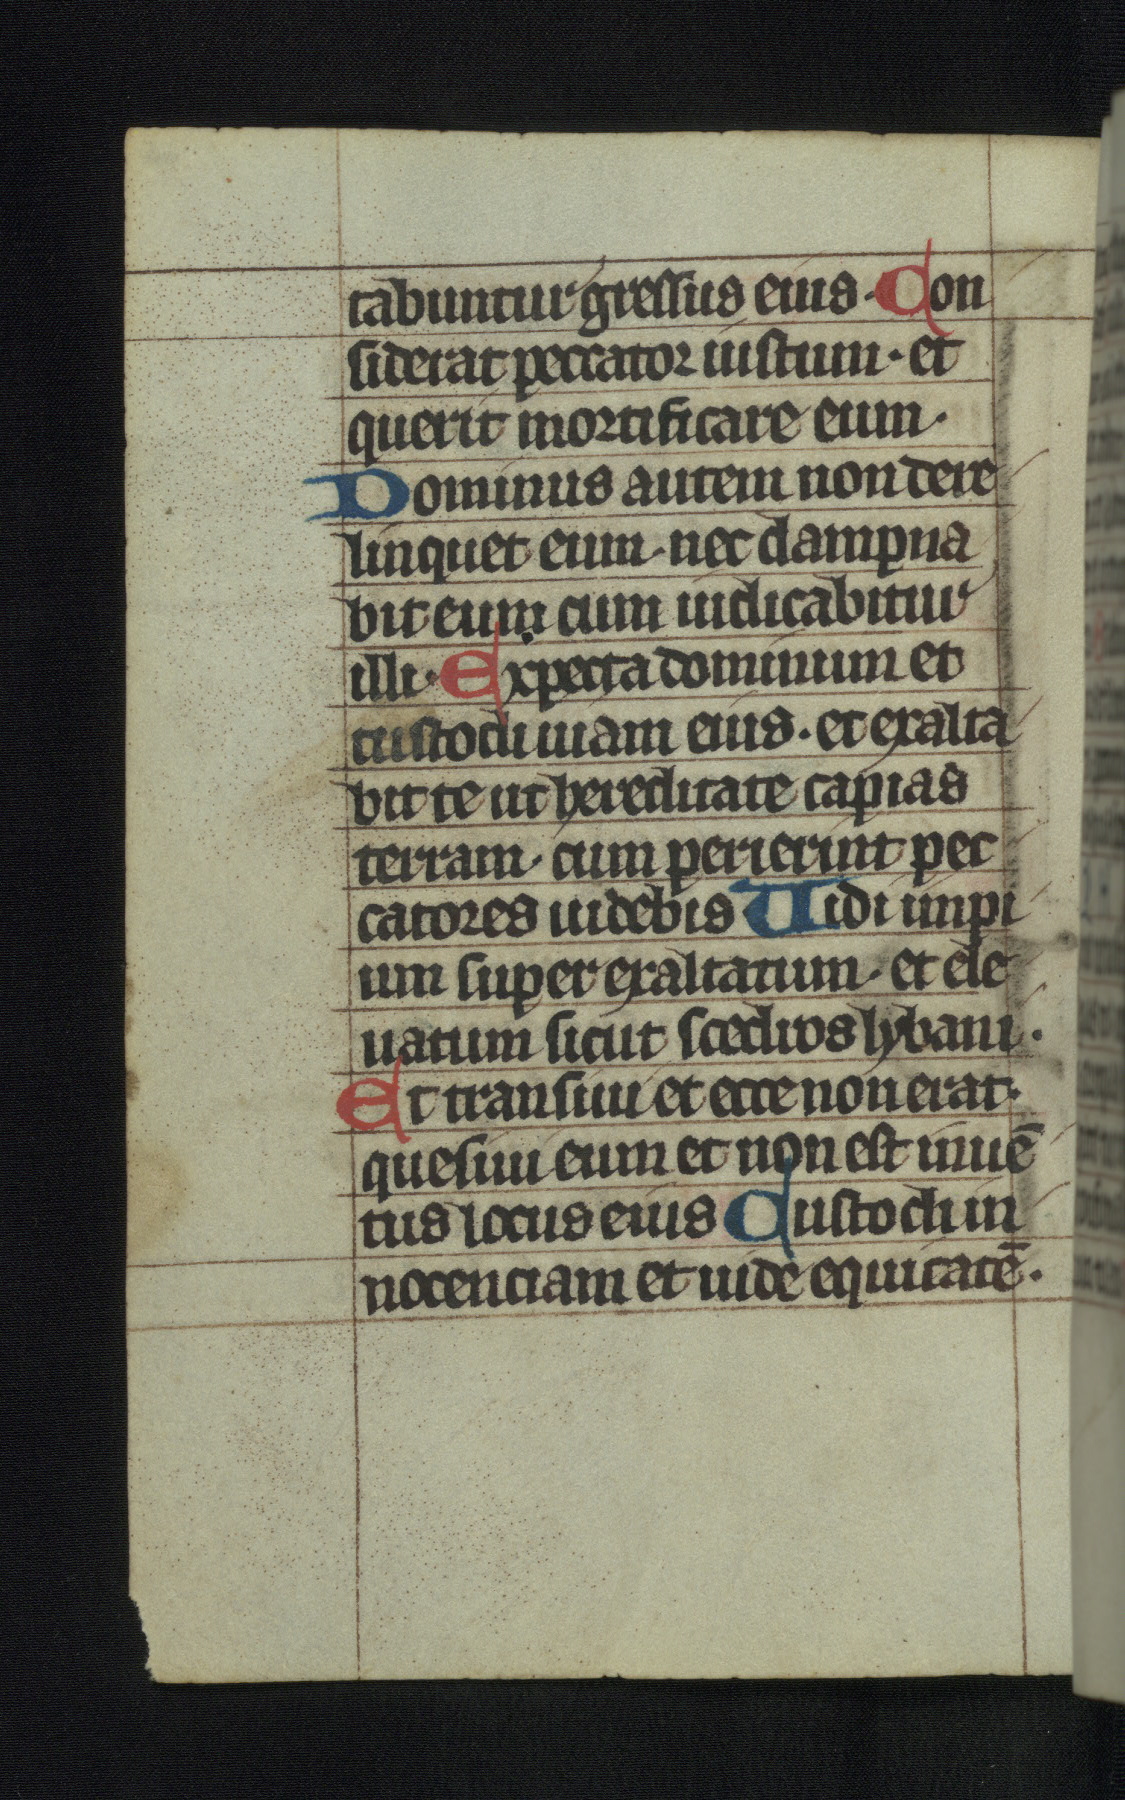 tabuntur gressus eius · Con
siderat peccator iustum · et
querit mortificare eum ·
Dominus autem non dere
linquet eum · nec dampna
bit eum cum iudicabitur
illi · Expecta dominum et
custodi uiam eius · et exalta
bit te ut hereditate capias
terram · cum perierint pec
catores uidebis Uidi impi
um super exaltatum · et ele
uatum sicut scedros lybani ·
Et transiui et ecce non erat ·
quesiui eum et non est inuē
tus locus eius Custodi in
nocenciam et uide equitatē ·